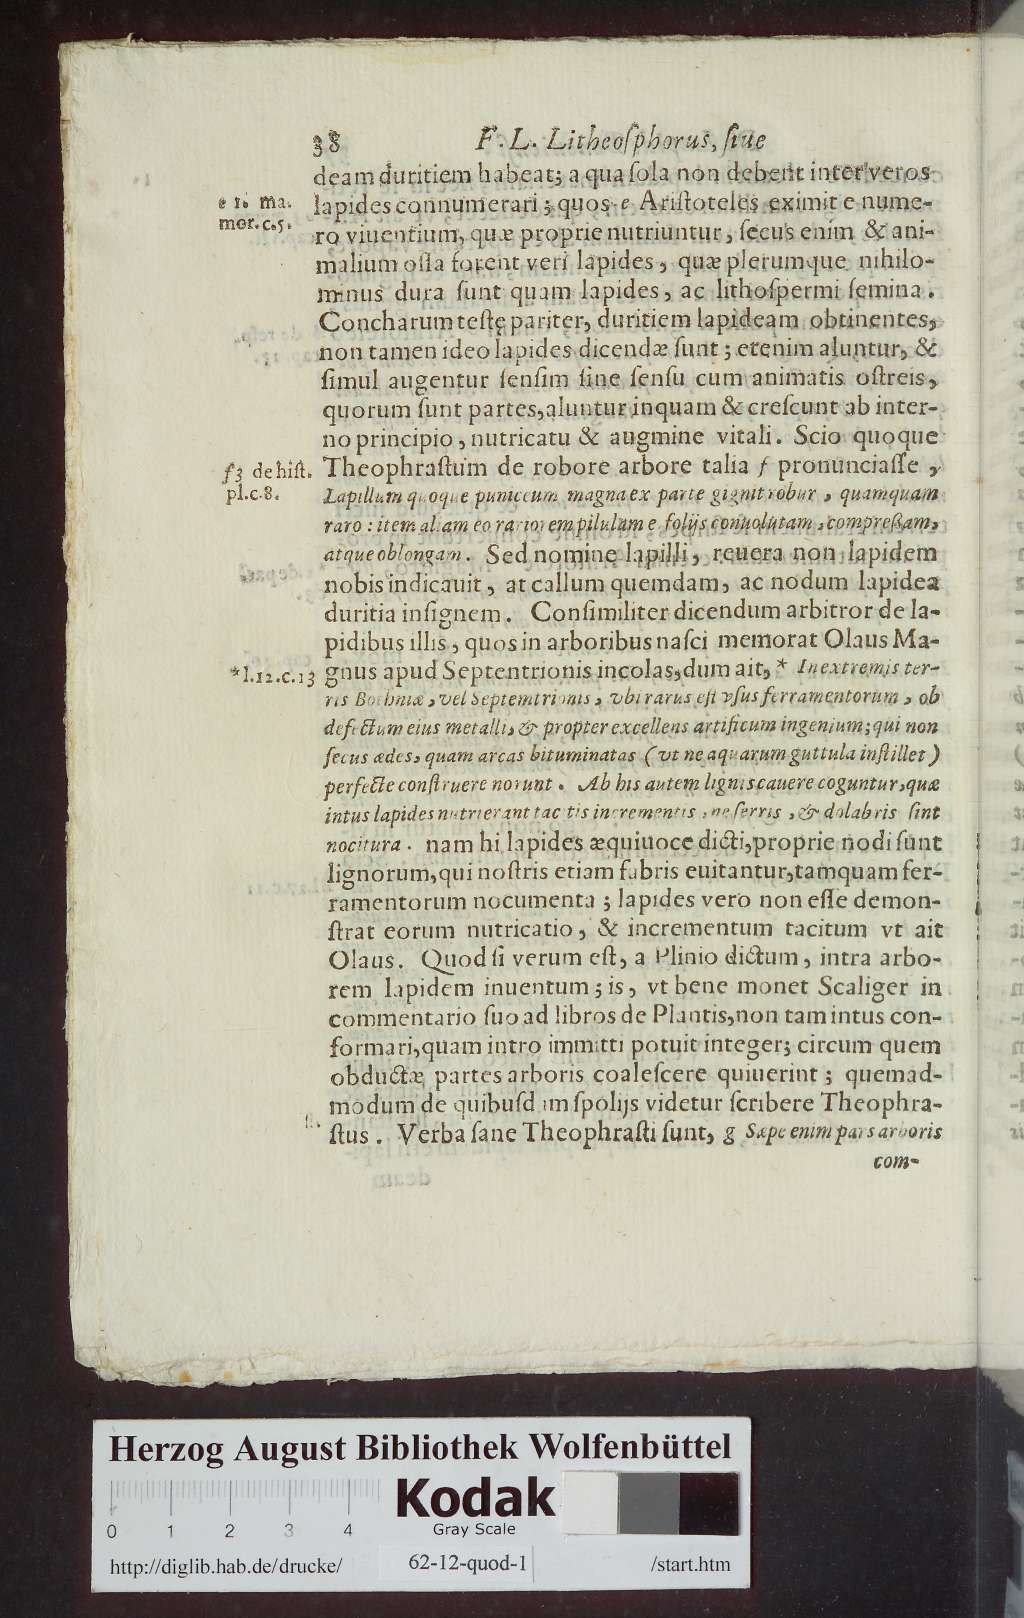 38 F. L. Litheosphorus, siue
deam duritiem habeat; a qua sola non debent inter veros
lapides connumerari; quos e Aristoteles eximit e nume-
e 1. ma.
mor. c.5.
ro viuentium, quæ proprie nutriuntur, secus enim & ani-
malium ossa forent veri lapides, quæ plerumque nihilo-
minus dura sunt quam lapides, ac lithospermi semina.
Concharum testę pariter, duritiem lapideam obtinentes,
non tamen ideo lapides dicendæ sunt; etenim aluntur, &
simul augentur sensim sine sensu cum animatis ostreis,
quorum sunt partes, aluntur inquam & crescunt ab inter-
no principio, nutricatu & augmine vitali. Scio quoque
Theophrastum de robore arbore talia f pronunciasse,
f 3 de hist.
pl.c.8.
Lapillum quoque puniceum magna ex parte gignit robur, quamquam
raro: item aliam eo rariorem pilulam e folijs conuolutam, compreßam,
atque oblongam. Sed nomine lapilli, reuera non lapidem
nobis indicauit, at callum quemdam, ac nodum lapidea
duritia insignem. Consimiliter dicendum arbitror de la-
pidibus illis, quos in arboribus nasci memorat Olaus Ma-
gnus apud Septentrionis incolas, dum ait, * In extremis ter-
*l.12.c.13
ris Bothniæ, vel Septemtrionis, vbi rarus est vsus ferramentorum, ob
defectum eius metalli, & propter excellens artificum ingenium; qui non
secus ædes, quam arcas bituminatas (vt ne aquarum guttula instillet)
perfecte construere norunt. Ab his autem lignis cauere coguntur, quæ
intus lapides nutrierant tacitis incrementis, ne serris, & dolabris sint
nocitura. nam hi lapides æquiuoce dicti, proprie nodi sunt
lignorum, qui nostris etiam fabris euitantur, tamquam fer-
ramentorum nocumenta; lapides vero non esse demon-
strat eorum nutricatio, & incrementum tacitum vt ait
Olaus. Quod si verum est, a Plinio dictum, intra arbo-
rem lapidem inuentum; is, vt bene monet Scaliger in
commentario suo ad libros de Plantis, non tam intus con-
formari, quam intro immitti potuit integer; circum quem
obductæ partes arboris coalescere quiuerint; quemad-
modum de quibusdam spolijs videtur scribere Theophra-
stus. Verba sane Theophrasti sunt, g Sæpe enim pars arboris
com-
Herzog August Bibliothek Wolfenbüttel
Kodak
Gray Scale
0 1 2 3 4
http://diglib.hab.de/drucke/ 62-12-quod-1 /start.htm